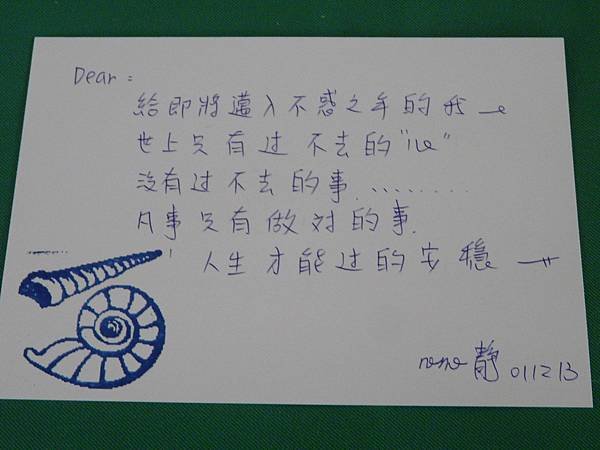 Dear:
給即將邁入不惑之年的我
世上只有过不去的"心"
沒有过不去的事.........
凡事只有做对的事.
人生才能过的安穩
nono 靜 011213